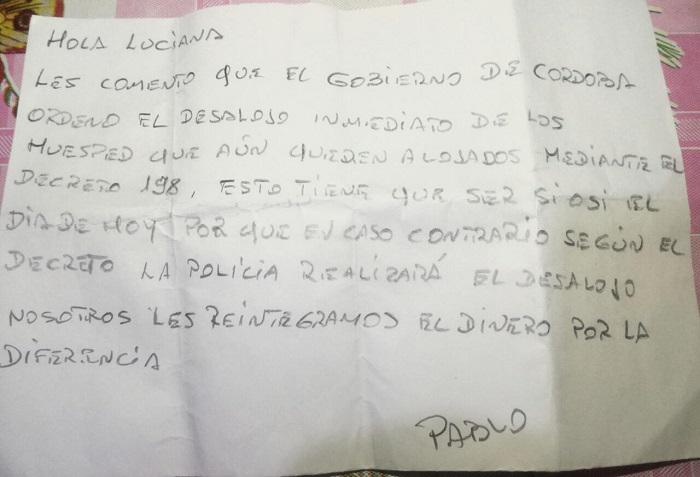 HOLA LUCIANA
LES COMENTO QUE EL GOBIERNO DE CORDOBA
ORDENO EL DESALOJO INMEDIATO DE LOS
HUESPED QUE AÚN QUEDEN ALOJADOS MEDIANTE EL
DECRETO 198, ESTO TIENE QUE SER SI O SI EL
DIA DE HOY POR QUE EN CASO CONTRARIO SEGÚN EL
DECRETO LA POLICIA REALIZARÁ EL DESALOJO
NOSOTROS LES REINTEGRAMOS EL DINERO POR LA
DIFERENCIA
PABLO